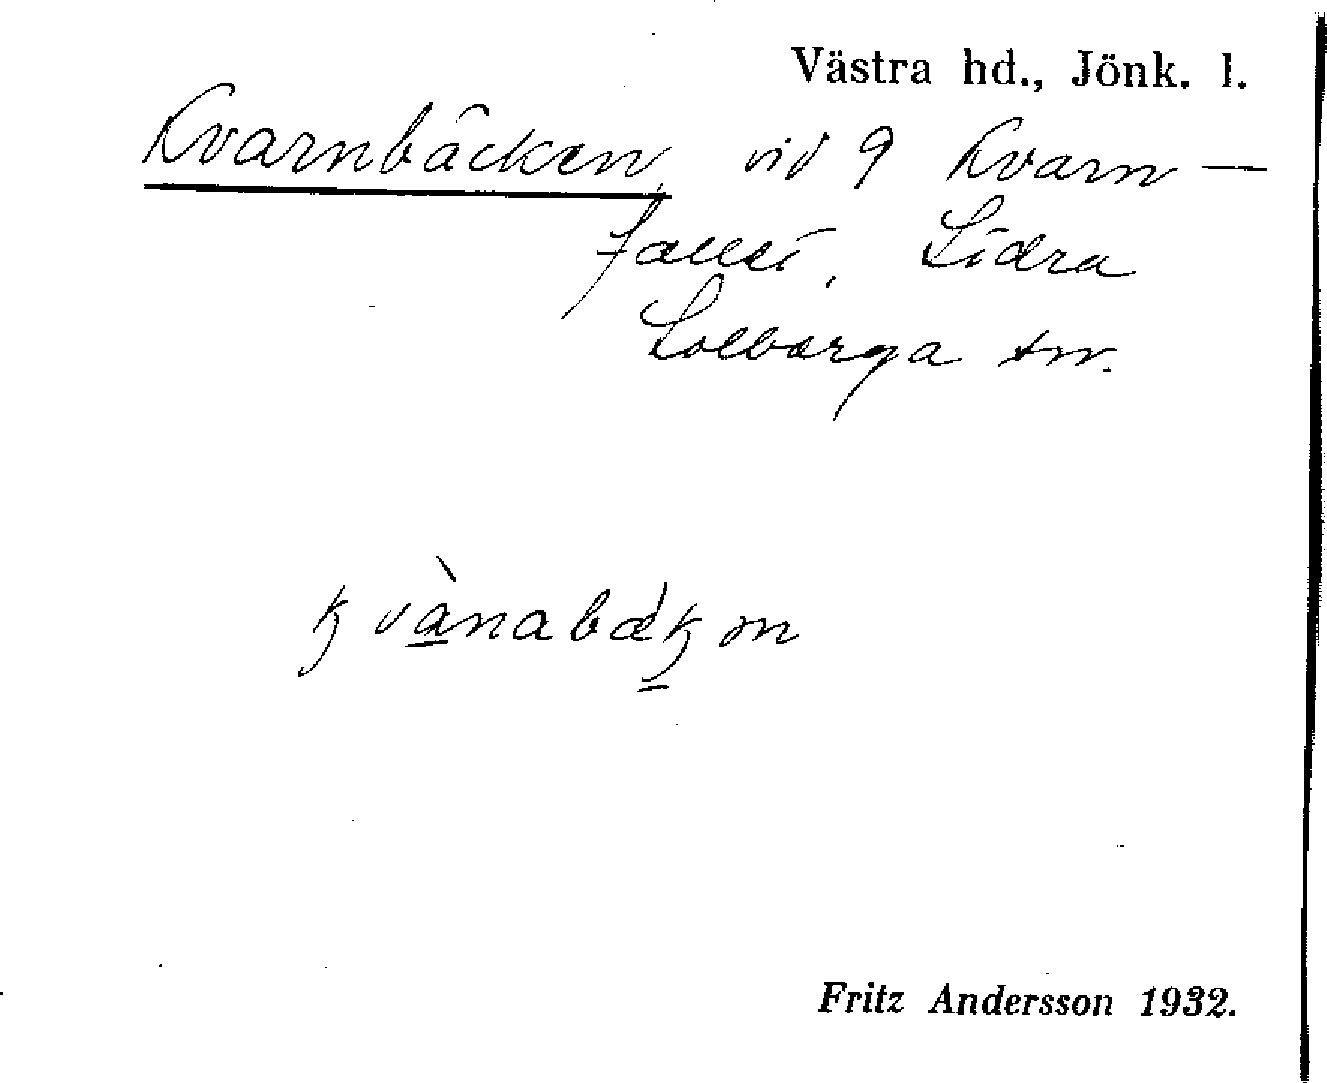 Västra hd., Jönk. l.
Kvarnbäcken, vid 9 Kvarn-
fallet, Södra
Solberga sn.
kvànabäkən
Fritz Andersson 1932.